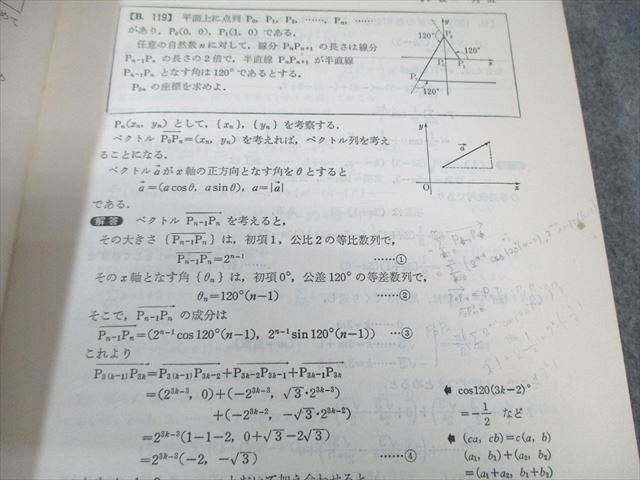 【B. 119】 平面上に点列 P₀, P₁, P₂, ……, Pₙ, ……
があり, P₀(0, 0), P₁(1, 0) である.
任意の自然数 n に対して, 線分 PₙPₙ₊₁ の長さは線分
Pₙ₋₁Pₙ の長さの2倍で, 半直線 PₙPₙ₊₁ が半直線
Pₙ₋₁Pₙ となす角は120°であるとする.
P₃ₙ の座標を求めよ.
y
120°
P₀
P₁
x
120°
Pₙ(xₙ, yₙ) として, {xₙ}, {yₙ} を考察する.
ベクトル P₀Pₙ=(xₙ, yₙ) を考えれば, ベクトル列を考え
ることになる.
ベクトル a が x 軸の正方向となす角を θ とすると
a=(a cosθ, a sinθ), a=|a|
である.
y
a
O
x
解答 ベクトル Pₙ₋₁Pₙ を考えると,
その大きさ {Pₙ₋₁Pₙ} は, 初項1, 公比2の等比数列で,
Pₙ₋₁Pₙ=2ⁿ⁻¹ ……①
その x 軸となす角 {θₙ} は, 初項0°, 公差120°の等差数列で,
θₙ=120°(n−1) ……②
そこで, Pₙ₋₁Pₙ の成分は
Pₙ₋₁Pₙ=(2ⁿ⁻¹cos120°(n−1), 2ⁿ⁻¹sin120°(n−1)) …③
これより
P₃₍ₖ₋₁₎P₃ₖ=P₃₍ₖ₋₁₎P₃ₖ₋₂+P₃ₖ₋₂P₃ₖ₋₁+P₃ₖ₋₁P₃ₖ
=(2³ᵏ⁻³, 0)+(−2³ᵏ⁻³, √3·2³ᵏ⁻³)
+(−2³ᵏ⁻², −√3·2³ᵏ⁻²)
=2³ᵏ⁻³(1−1−2, 0+√3−2√3)
=2³ᵏ⁻³(−2, −√3) ……④
cos120(3k−2)°
=−1/2 など
(ca, cb)=c(a, b)
(a₁, b₁)+(a₂, b₂)
=(a₁+a₂, b₁+b₂)